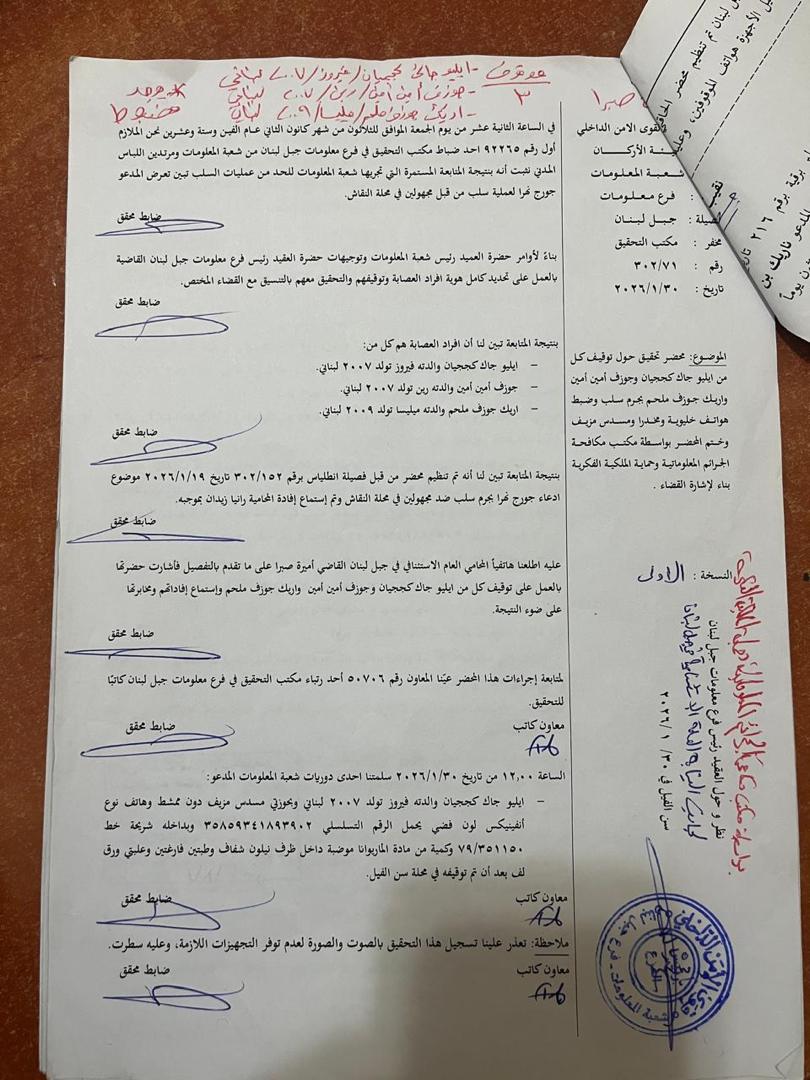 موقوف
- ايليو جاك كججيان / فيروز / ٢٠٠٧ لبناني
٣ - جوزف امين امين / رين / ٢٠٠٧ لبناني
- اريك جوزف ملحم / ميليسا / ٢٠٠٩ لبناني
يوجد مضبوط
صبرا
قوى الامن الداخلي
هيئة الأركان
شعبة المعلومات
فرع معلومات :
فصيلة : جبل لبنان
مخفر : مكتب التحقيق
رقم : ٣٠٢/٧١
تاريخ : ٢٠٢٦/١/٣٠
الموضوع: محضر تحقيق حول توقيف كل
من ايليو جاك كججيان وجوزف أمين أمين
واريك جوزف ملحم بجرم سلب وضبط
هواتف خليوية ومخدرا ومسدس مزيف
وختم المحضر بواسطة مكتب مكافحة
الجرائم المعلوماتية وحماية الملكية الفكرية
بناء لإشارة القضاء .
النسخة : الاولى
نظر و حول العقيد رئيس فرع معلومات جبل لبنان
سن الفيل في ٣٠/ ٢٠٢٦/١
في الساعة الثانية عشر من يوم الجمعة الموافق للثلاثون من شهر كانون الثاني عام الفين وستة وعشرين نحن الملازم
أول رقم ٩٢٢٦٥ احد ضباط مكتب التحقيق في فرع معلومات جبل لبنان من شعبة المعلومات ومرتدين اللباس
المدني نثبت أنه بنتيجة المتابعة المستمرة التي تجريها شعبة المعلومات للحد من عمليات السلب تبين تعرض المدعو
جورج نهرا لعملية سلب من قبل مجهولين في محلة النقاش.
ضابط محقق
بناءً لأوامر حضرة العميد رئيس شعبة المعلومات وتوجيهات حضرة العقيد رئيس فرع معلومات جبل لبنان القاضية
بالعمل على تحديد كامل هوية افراد العصابة وتوقيفهم والتحقيق معهم بالتنسيق مع القضاء المختص.
ضابط محقق
بنتيجة المتابعة تبين لنا أن افراد العصابة هم كل من:
– ايليو جاك كججيان والدته فيروز تولد ٢٠٠٧ لبناني.
– جوزف أمين أمين والدته رين تولد ٢٠٠٧ لبناني.
– اريك جوزف ملحم والدته ميليسا تولد ٢٠٠٩ لبناني.
ضابط محقق
بنتيجة المتابعة تبين لنا أنه تم تنظيم محضر من قبل فصيلة انطلياس برقم ٣٠٢/١٥٢ تاريخ ٢٠٢٦/١/١٩ موضوع
ادعاء جورج نهرا بجرم سلب ضد مجهولين في محلة النقاش وتم إستماع إفادة المحامية رانيا زيدان بموجبه.
ضابط محقق
عليه اطلعنا هاتفياً المحامي العام الاستئنافي في جبل لبنان القاضي أميرة صبرا على ما تقدم بالتفصيل فأشارت حضرتها
بالعمل على توقيف كل من ايليو جاك كججيان وجوزف أمين أمين واريك جوزف ملحم وإستماع إفاداتهم ومخابرتها
على ضوء النتيجة.
ضابط محقق
لمتابعة إجراءات هذا المحضر عيّنا المعاون رقم ٥٠٧٠٦ أحد رتباء مكتب التحقيق في فرع معلومات جبل لبنان كاتبًا
للتحقيق.
معاون كاتب ضابط محقق
الساعة ١٢,٠٠ من تاريخ ٢٠٢٦/١/٣٠ سلمتنا احدى دوريات شعبة المعلومات المدعو:
– ايليو جاك كججيان والدته فيروز تولد ٢٠٠٧ لبناني وبحوزتي مسدس مزيف دون ممشط وهاتف نوع
أنفينيكس لون فضي يحمل الرقم التسلسلي ٣٥٨٥٩٣٤١٨٩٣٩٠٢ وبداخله شريحة خط
٧٩/٣٥١١٥٠ وكمية من مادة الماريوانا موضبة داخل ظرف نيلون شفاف وطبتين فارغتين وعلبتي ورق
لف بعد أن تم توقيفه في محلة سن الفيل.
معاون كاتب ضابط محقق
ملاحظة: تعذر علينا تسجيل هذا التحقيق بالصوت والصورة لعدم توفر التجهيزات اللازمة، وعليه سطرت.
معاون كاتب ضابط محقق